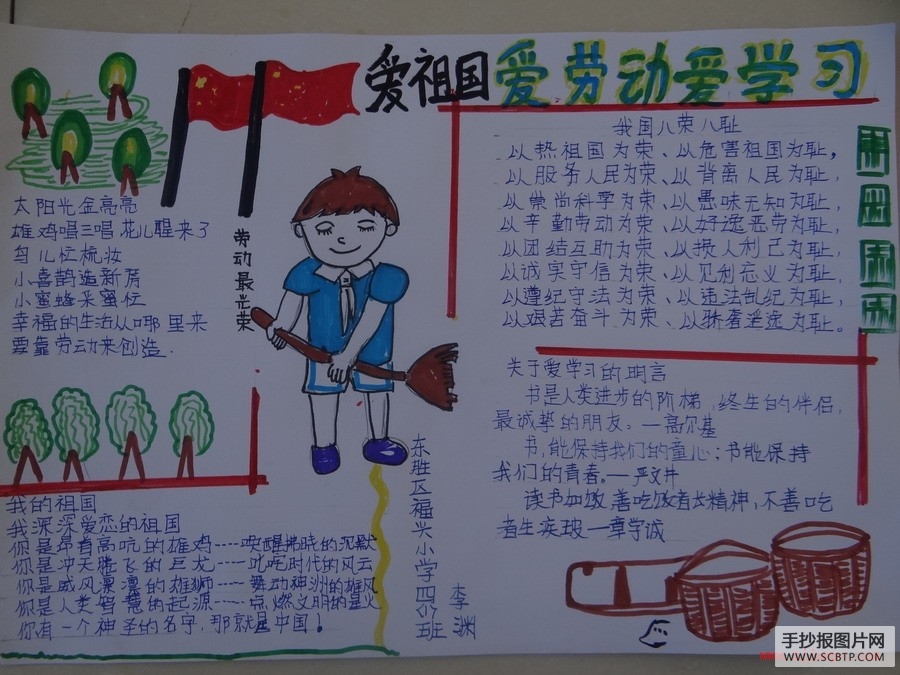 爱祖国爱劳动爱学习
太阳光金亮亮
雄鸡唱三唱花儿醒来了
鸟儿忙梳妆
小喜鹊造新房
小蜜蜂采蜜忙
幸福的生活从哪里来
要靠劳动来创造.
劳动最光荣
我国八荣八耻
以热祖国为荣、以危害祖国为耻,
以服务人民为荣、以背离人民为耻,
以崇尚科学为荣、以愚昧无知为耻,
以辛勤劳动为荣、以好逸恶劳为耻,
以团结互助为荣、以损人利己为耻,
以诚实守信为荣、以见利忘义为耻,
以遵纪守法为荣、以违法乱纪为耻,
以艰苦奋斗为荣、以骄奢淫逸为耻。
关于爱学习的明言
书是人类进步的阶梯,终生的伴侣,
最诚挚的朋友。—高尔基
书,能保持我们的童心;书能保持
我们的青春。—严文井
读书如饭,善吃饭者长精神,不善吃
者生疾玻—章学诚
我的祖国
我深深爱恋的祖国
你是昂首高吭的雄鸡----唤醒拂晓的沉默
你是冲天腾飞的巨龙----叱咤时代的风云
你是威风凛凛的雄狮----舞动神州的雄风
你是人类智慧的起源----点燃文明的星火
你有一个神圣的名字,那就是中国!
东胜区福兴小学四(2)班
李渊
手抄报图片网
WWW.SCBTP.COM